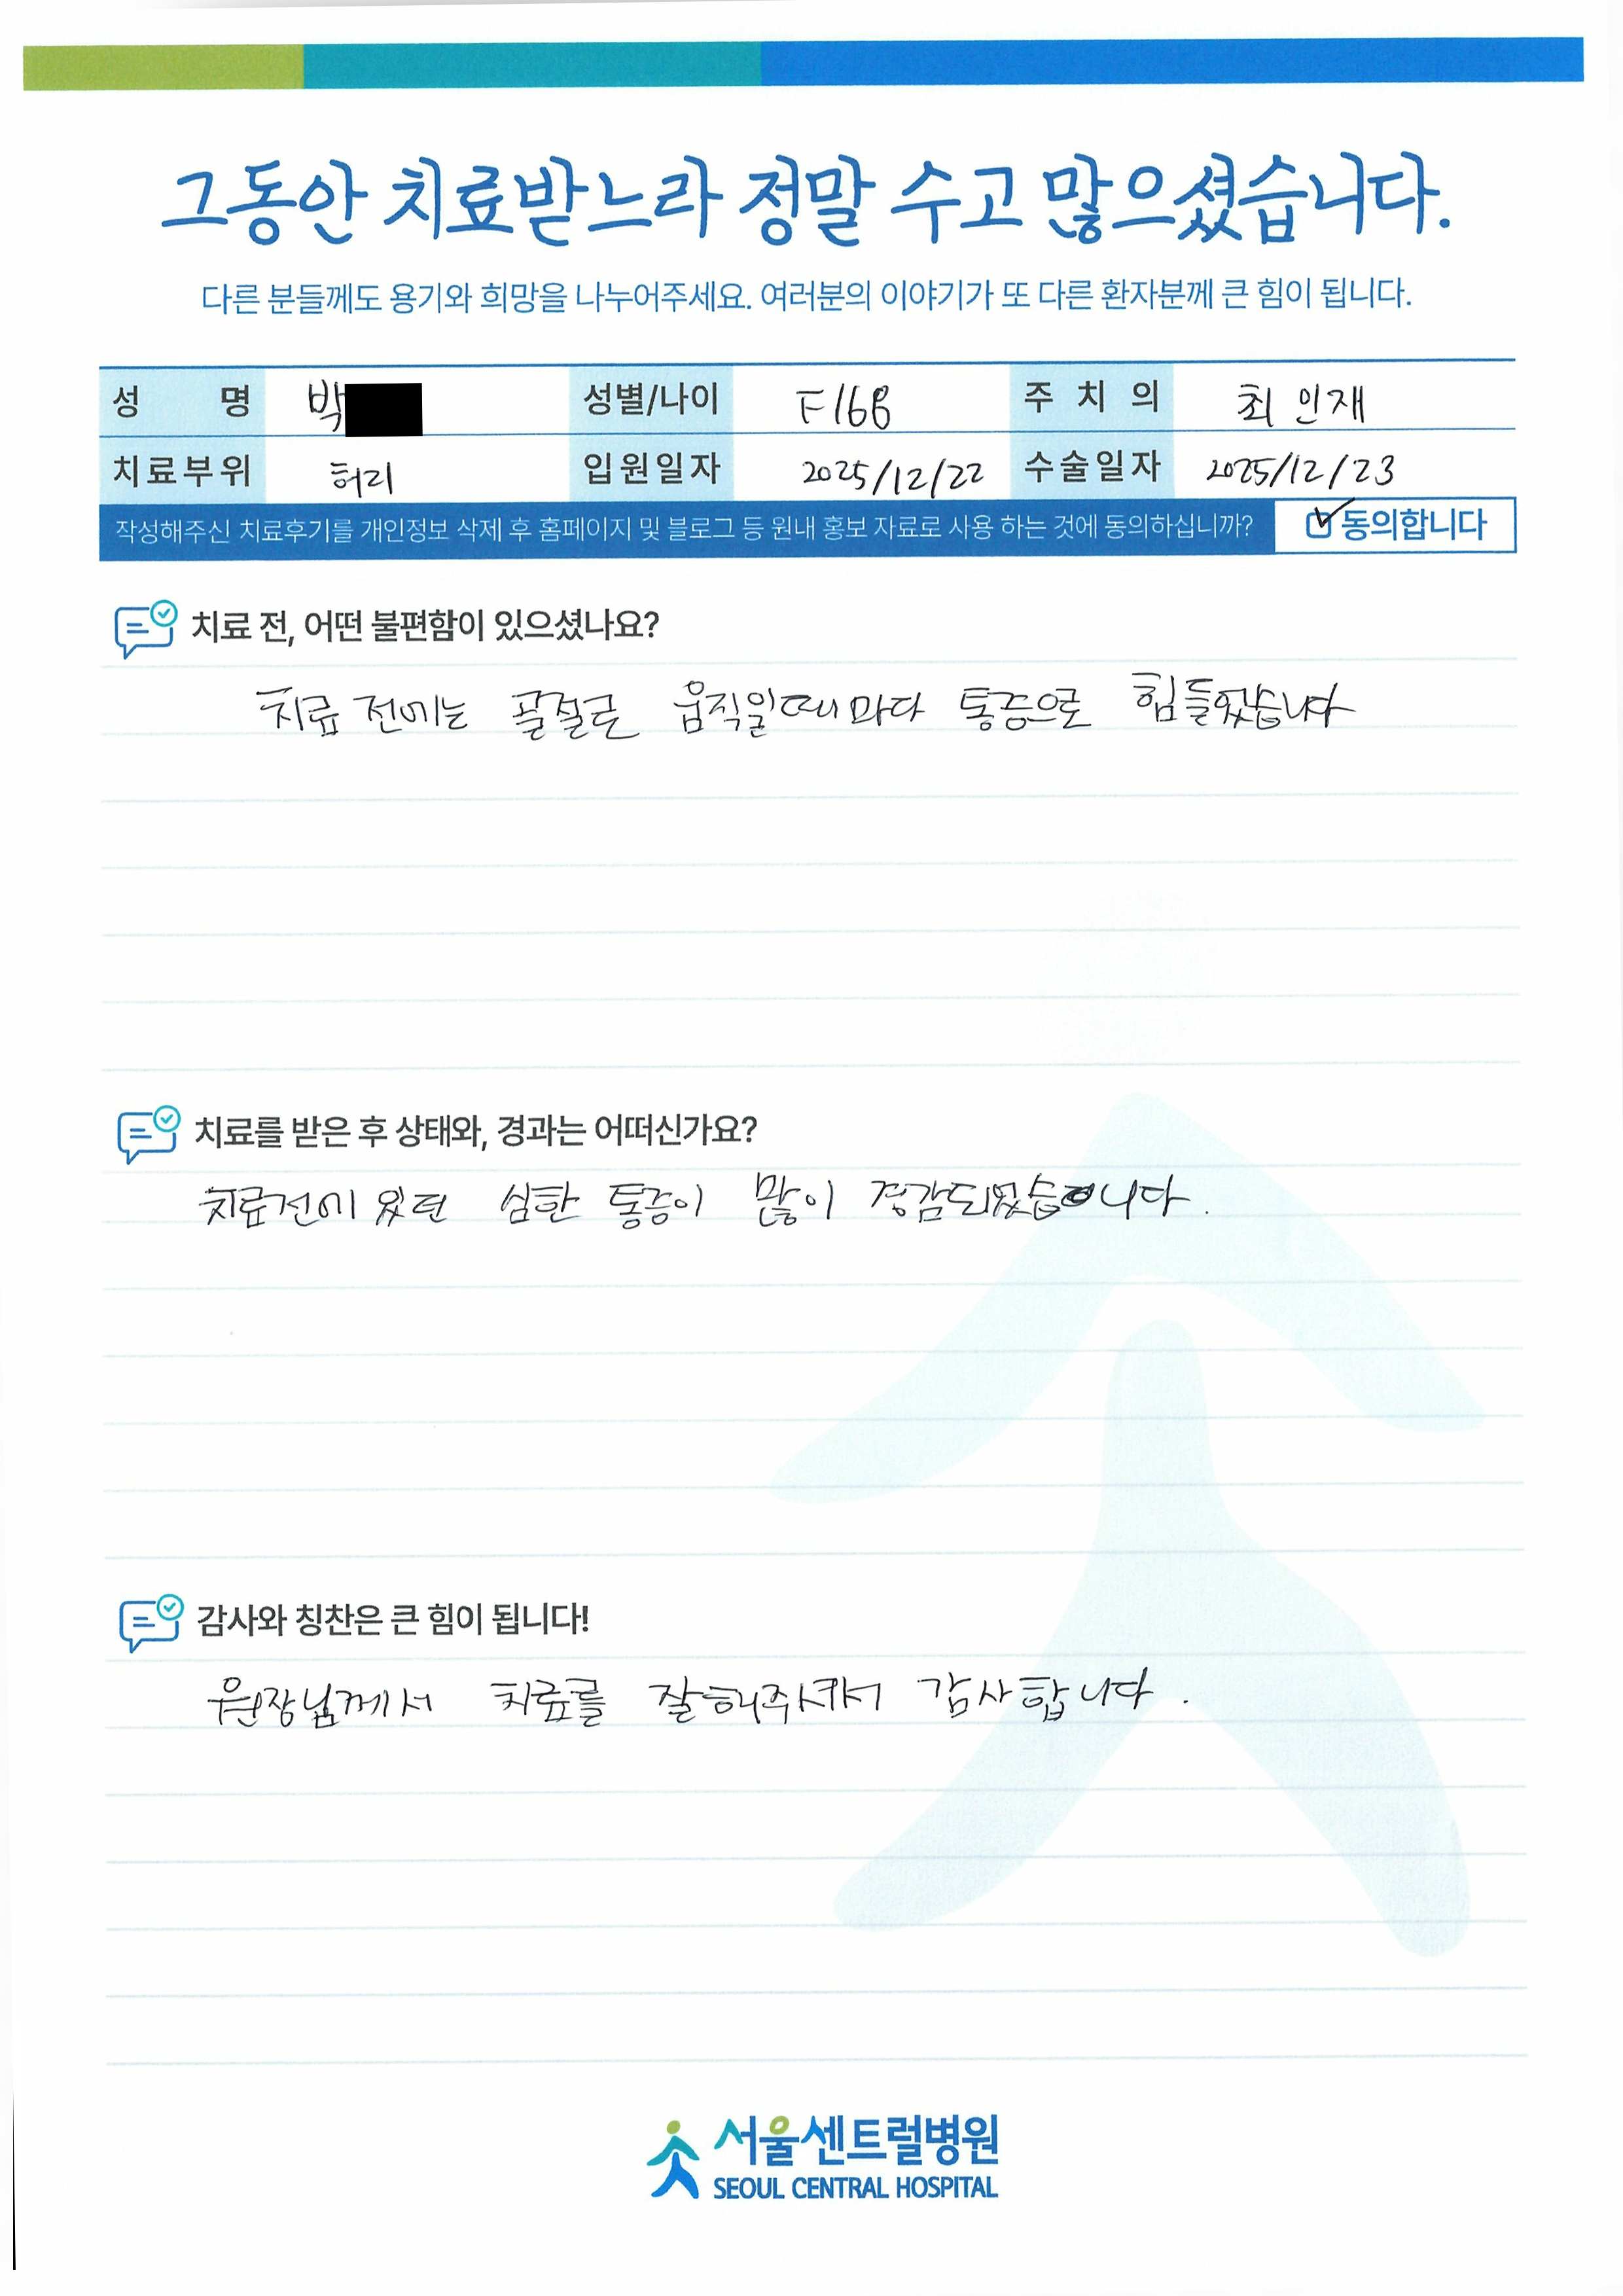 그동안 치료받느라 정말 수고 많으셨습니다.
다른 분들께도 용기와 희망을 나누어주세요. 여러분의 이야기가 또 다른 환자분께 큰 힘이 됩니다.
성 명 박 성별/나이 F/68 주 치 의 최인재
치료부위 허리 입원일자 2025/12/22 수술일자 2025/12/23
작성해주신 치료후기를 개인정보 삭제 후 홈페이지 및 블로그 등 원내 홍보 자료로 사용 하는 것에 동의하십니까? 동의합니다
치료 전, 어떤 불편함이 있으셨나요?
치료 전에는 골절로 움직일때마다 통증으로 힘들었습니다
치료를 받은 후 상태와, 경과는 어떠신가요?
치료전에 있던 심한 통증이 많이 경감되었습니다.
감사와 칭찬은 큰 힘이 됩니다!
원장님께서 치료를 잘해주셔서 감사합니다.
서울센트럴병원
SEOUL CENTRAL HOSPITAL